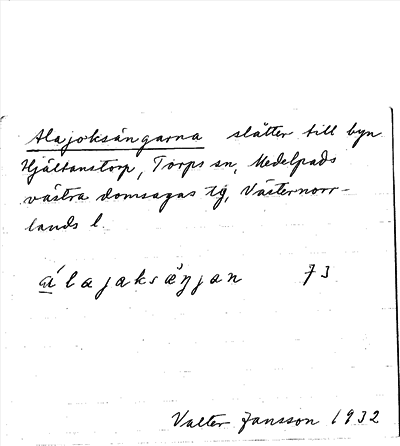 Alajoksängarna slåtter till byn
Hjältanstorp, Torps sn, Medelpads
västra domsagas tg, Västernorr-
lands l.
álajaksæ̀ŋjan 73
Valter Jansson 1932